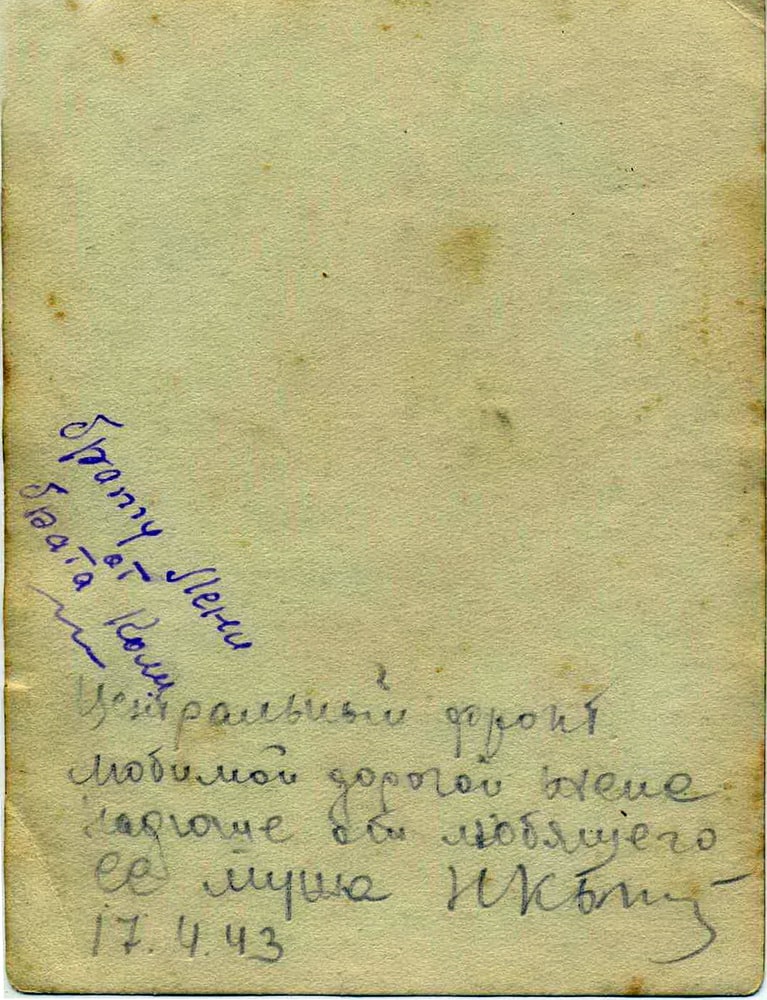 брату Лени
от
брата Коли
Центральный фронт.
любимой дорогой жене
Надюше от любящего
ее мужа
17.4.43